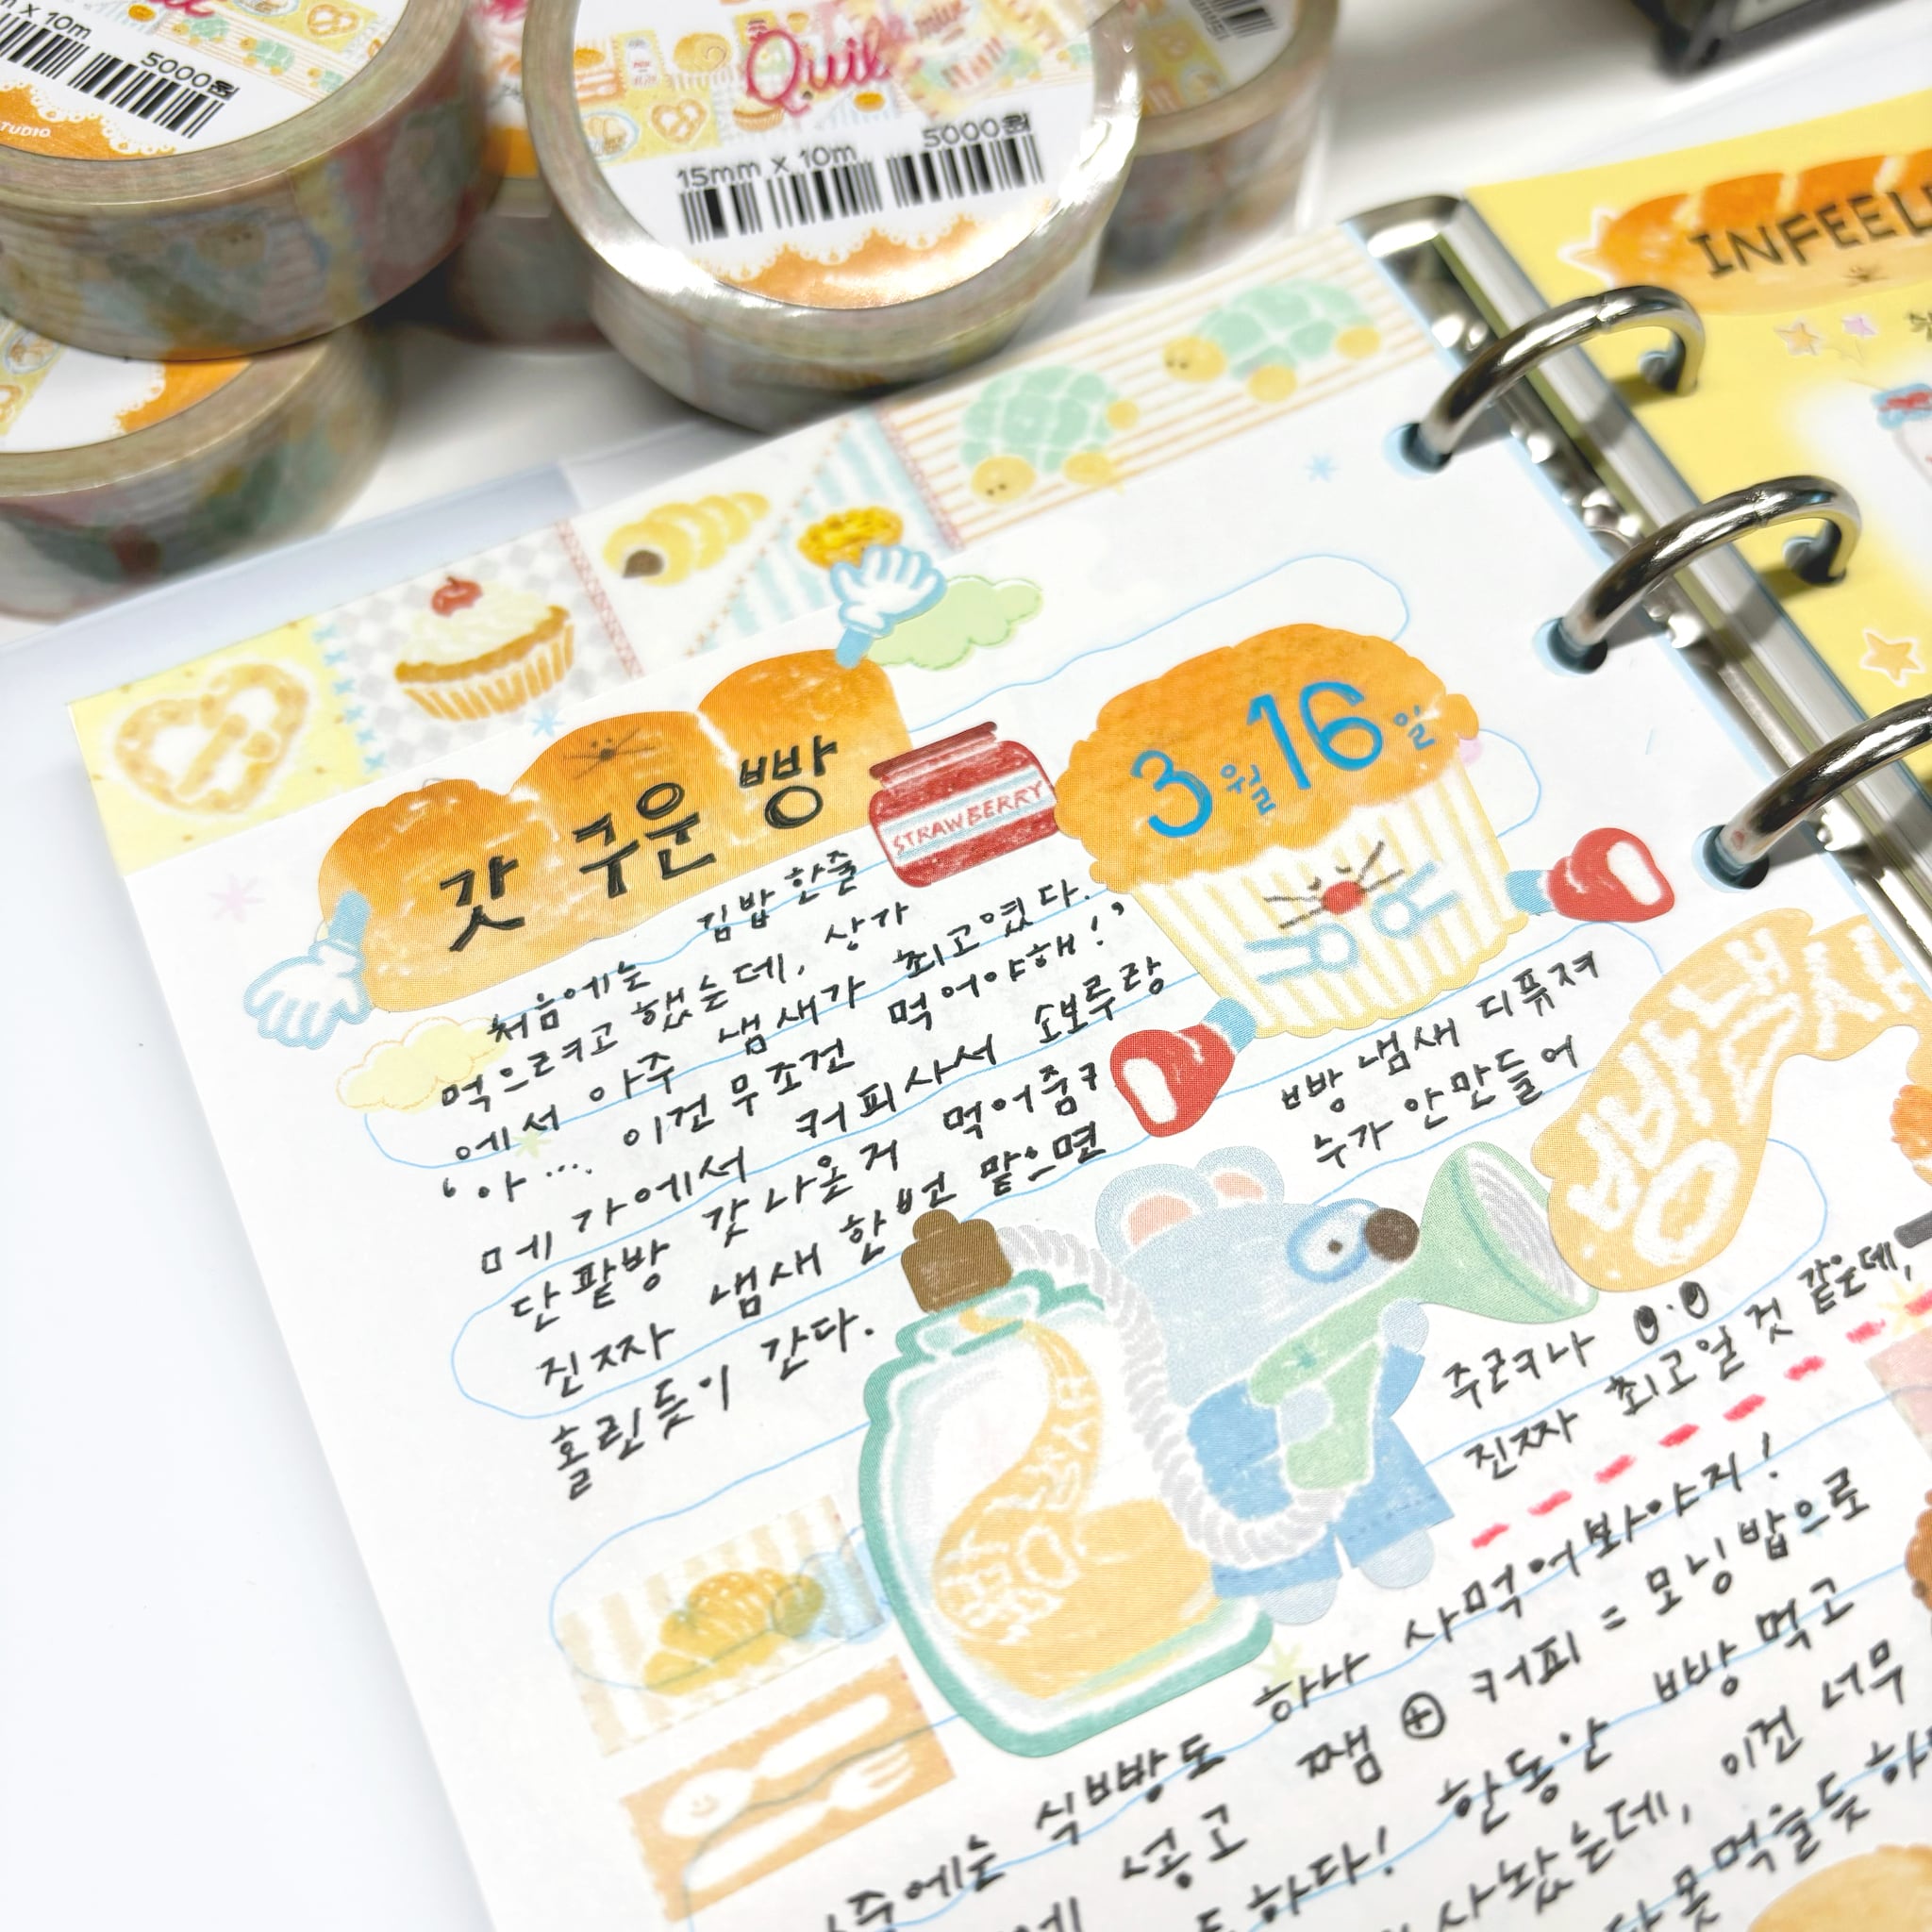 x 10m
5000원
TUDIO
Quil
15mm x 10m
5000원
INFEEL
갓 구운 빵
STRAWBERRY
3월 16일
김밥 한줄
처음에는
먹으려고 했는데, 상가
에서 아주 냄새가 최고였다.
'아... 이건 무조건 먹어야해!'
메가에서 커피사서 소보루랑
단팥빵 갓 나온거 먹어줌ㅋ
진짜 냄새 한번 맡으면
홀린듯이 간다.
빵 냄새 디퓨져
누가 안만들어
주려나
빵냄새
진짜 최고일 것 같은데,
주에는 식빵도 하나 사먹어봐야지!
에 굽고 쨈 ⊕ 커피 = 모닝밥으로
하다! 한동안 빵 먹고
사놨는데, 이건 너무